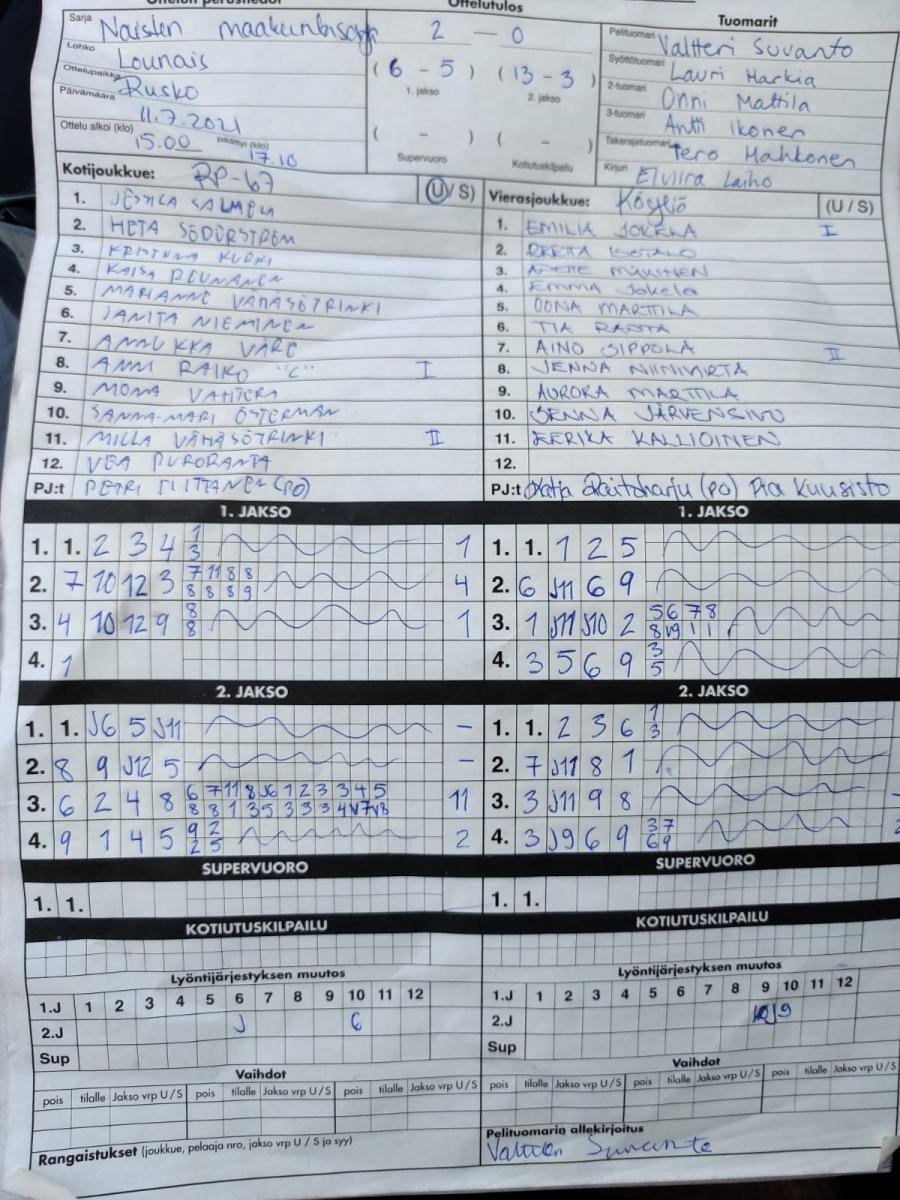 Ottelutulos
Tuomarit
Sarja Naisten maakuntasarja
2 – 0
Pelituomari Valtteri Suvanto
Lohko Lounais
(6 – 5) (13 – 3)
1. jakso 2. jakso
Syöttötuomari Lauri Harkia
Ottelupaikka Rusko
2-tuomari Onni Mattila
Päivämäärä 11.7.2021
( – ) ( – )
Supervuoro Kotiutuskilpailu
3-tuomari Antti Ikonen
Ottelu alkoi (klo) 15.00 päättyi (klo) 17.10
Takarajatuomari Tero Mahkonen
Kirjuri Elviira Laiho
Kotijoukkue: RP-67 (U/S)
1. JESSICA SALMELA
2. HETA SÖDERSTRÖM
3. KRISTIINA KURKI
4. KAISA REUNANEN
5. MARIANNE VÄHÄSÖYRINKI
6. JANITA NIEMINEN
7. ANNUKKA VARE
8. ANNI RAIKO "C" I
9. MONA VAHTERA
10. SANNA-MARI ÖSTERMAN
11. MILLA VÄHÄSÖYRINKI II
12. VEA PURORANTA
PJ:t PETRI TIITTANEN (PO)
Vierasjoukkue: Köyliö (U/S)
1. EMILIA JOKELA I
2. REETTA
3. ANETTE MÄKINEN
4. EMMA Jokela
5. OONA MARTTILA
6. TIA RANTA
7. AINO SIPPOLA II
8. JENNA NIINIVIRTA
9. AURORA MARTTILA
10. JENNA JÄRVENSIVU
11. EERIKA KALLIOINEN
12.
PJ:t Katja Raitoharju (PO) Pia Kuusisto
1. JAKSO
1. 1. 2 3 4 1 1
3
2. 7 10 12 3 7 11 8 8 4
8 8 8 9
3. 4 10 12 9 8 1
8
4. 1
1. JAKSO
1. 1. 1 2 5
2. 6 J11 6 9
3. 1 J11 J10 2 5 6 7 8
8 V9 1 1
4. 3 5 6 9 3
5
2. JAKSO
1. 1. J6 5 J11 –
2. 8 9 J12 5 –
3. 6 2 4 8 6 7 11 8 J6 1 2 3 3 4 5 11
8 8 1 3 5 3 3 3 4 V7 V8
4. 9 1 4 5 9 2 2
2 5
2. JAKSO
1. 1. 2 3 6 1
3
2. 7 J11 8 1
3. 3 J11 9 8 –
4. 3 J9 6 9 3 7 2
6 9
SUPERVUORO
1. 1.
SUPERVUORO
1. 1.
KOTIUTUSKILPAILU
KOTIUTUSKILPAILU
Lyöntijärjestyksen muutos
1.J 1 2 3 4 5 6 7 8 9 10 11 12
2.J J 6
Sup
Lyöntijärjestyksen muutos
1.J 1 2 3 4 5 6 7 8 9 10 11 12
2.J J9
Sup
Vaihdot
pois tilalle Jakso vrp U/S pois tilalle Jakso vrp U/S pois tilalle Jakso vrp U/S
Vaihdot
pois tilalle Jakso vrp U/S pois tilalle Jakso vrp U/S pois tilalle Jakso vrp U/S
Rangaistukset (joukkue, pelaaja nro, jakso vrp U / S ja syy)
Pelituomarin allekirjoitus
Valtteri Suvanto